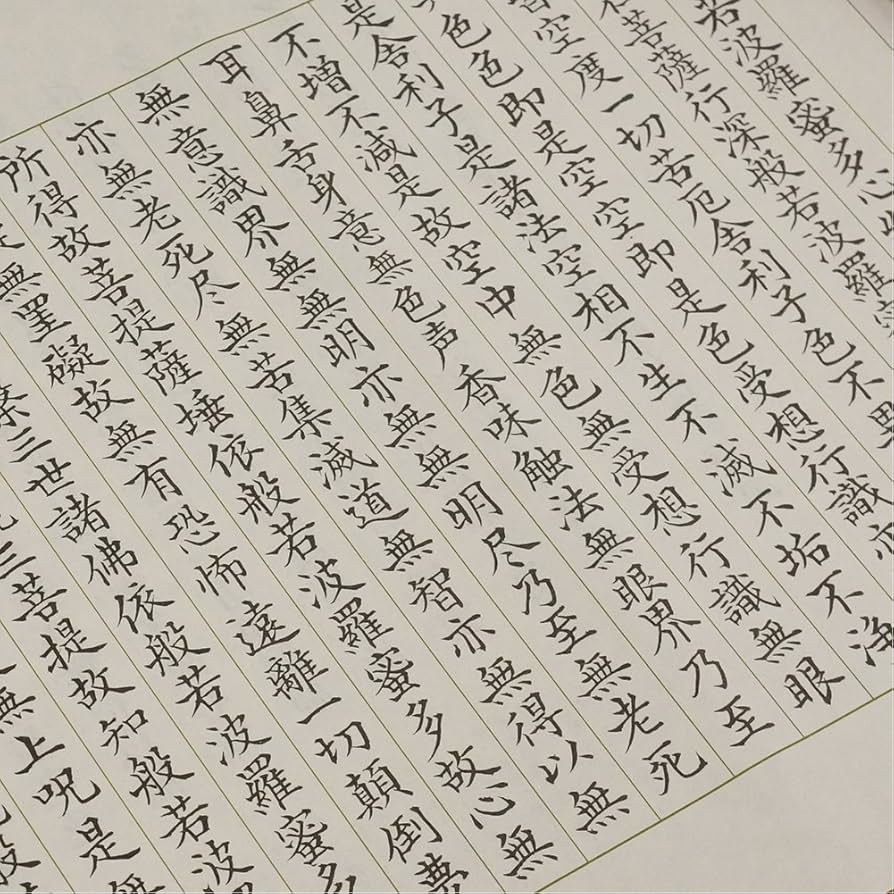 若波羅蜜多心
菩薩行深般若波羅蜜
皆空度一切苦厄舎利子色不異
色色即是空空即是色受想行識亦
是舎利子是諸法空相不生不滅不垢不浄
不増不減是故空中無色無受想行識無眼
耳鼻舌身意無色声香味触法無眼界乃至
無意識界無無明亦無無明尽乃至無老死
亦無老死尽無苦集滅道無智亦無得以無
所得故菩提薩埵依般若波羅蜜多故心無
無罣礙故無有恐怖遠離一切顛倒夢
槃三世諸佛依般若波羅蜜多
三菩提故知般若波
無上呪是無
般